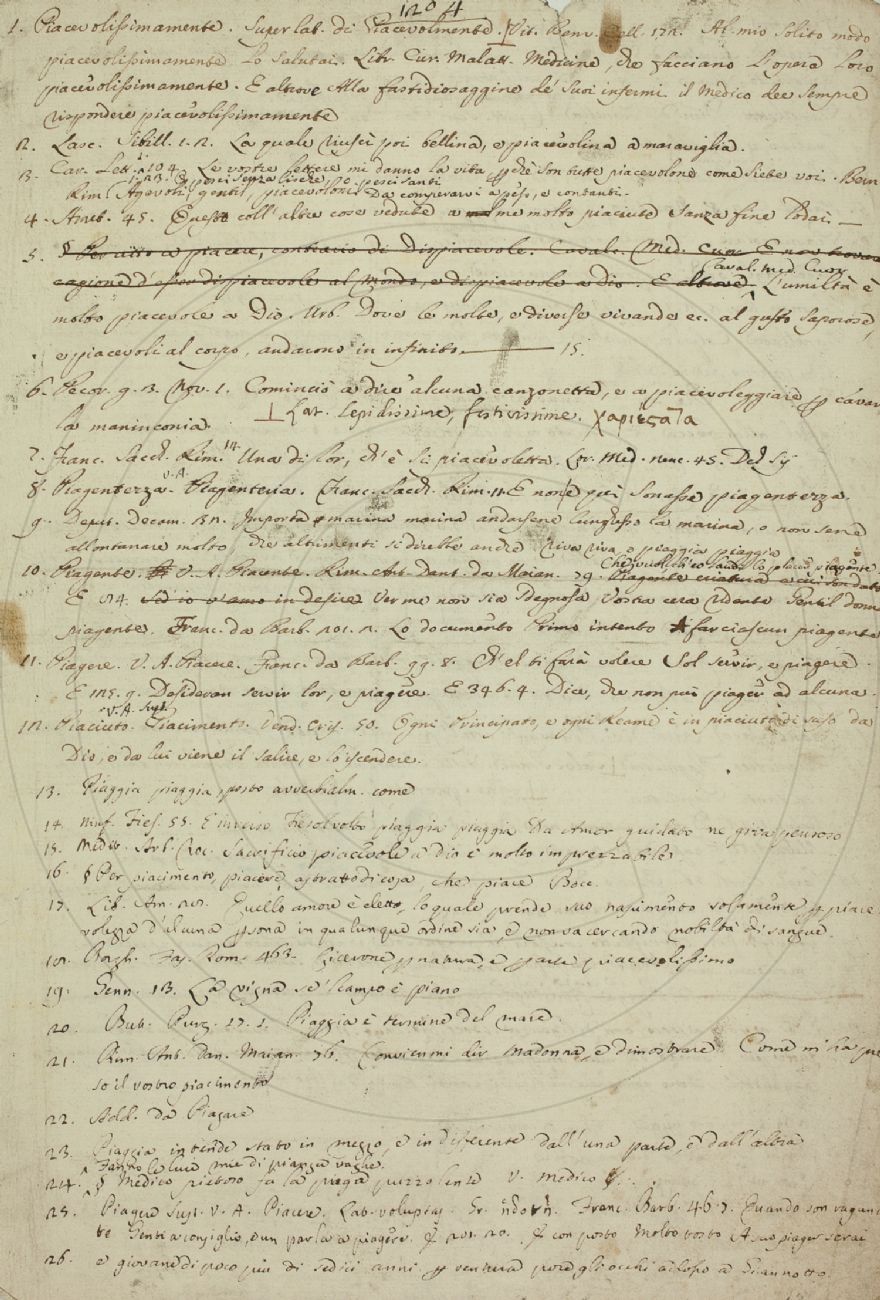 1204
1. Piacevolissimamente. Superlat. di Piacevolmente. Vit. Benv. Cell. 172. Al mio solito modo
piacevolissimamente lo salutai. Libr. Cur. Malatt. Medicine, che facciano l'opera loro
piacevolissimamente. E altrove Alla fastidiosaggine de' suoi infermi il medico dee sempre
rispondere piacevolissimamente
2. Lasc. Sibill. 1. 2. La quale riuscì poi bellina, e piacevolina a maraviglia.
3. Car. Lett. Le vostre lettere mi danno la vita perchè son tutte piacevolone come siete voi. Bern
Rim. Agevoli, gentil, piacevoloni
Da conservarvi e contanti.
4. Amet. 45. Queste coll' altre cose vedute a me molto piaciute sanza fine lodai. —
5. § Per atto a piacere, contrario di Dispiacevole. Cavalc. Med. Cuor. E non trova
cagione d'esser dispiacevole al Mondo, e dispiacevole a Dio. E altrove
Caval. Med. Cuor.
L'umiltà è
molto piacevole a Dio Urb. Dove le molte, e diverse vivande ec. al gusto saporose,
e piacevoli al corpo, andarono in infinito. 15.
6. Pecor. g. 3. Nov. 1. Cominciò a dire alcuna canzonetta, e a piacevoleggiare per cavar
la maninconia. Lat. Lepidissime, festivissime.
7. Franc. Sacch. Rim. 14 Una di lor, ch' è sì piacevoletta. Lor. Med. nenc. 45.
8. Piagenterza. V. A. Piagenteria. Franc. Sacch. Rim. E non è più sonasse piagenterza.
9. Deput. Decam. Importa marina marina andarsene lunghesso la marina, o non sene
allontanare molto, che altrimenti si direbbe anche riva riva, o piaggia piaggia
10. Piagente. V. A. Piacente. Rim. Ant. Dant. da Maian. 79. Piagente criatura
E 74. Sed io v'amo in desire Ver me non sia Degnosa Vostra cera ridente Gentil donna
piagente. Franc. da Barb. 201. 2. Lo documento Primo intento A far ciascun piagente
11. Piagere. V. A. Piacere. Franc. da Barb. 99. 8. Ch' el ti farà volere Sol servir, e piagere.
E 125. 9. Desideran servir lor, e piagere. E 346. 4. Dice, che non può piager ad alcuna.
V. A. Sust.
12. Piaciuto. Piacimento. Vend. Crist. 50. Ogni Principato, e ogni Reame è in piaciuto di suso da
Dio, e da lui viene il salire, e lo scendere.
13. Piaggia piaggia posto avverbialm. come
14. Ninf. Fies. 55. E inverso Fiesol volto piaggia piaggia Da Amor guidato ne gira pensoso
15. Medit. Arb. Croc. Sacrificio piacevole a Dio è molto imprezzabile
16. § Per piacimento, piacere astratto di cosa, che piace Bocc.
17. Lib. Am. 20. Quello amore è eletto, lo quale prende suo nascimento solamente per piace-
volezza d'alcuna persona in qualunque ordine sia, e non va cercando nobiltà di sangue.
18. Borgh. Fas. Rom. 463. Cicerone per natura, e parte piacevolissimo
19. Genn. 13. La vigna se'l campo è piano
20. But. Purg. 17. 1. Piaggia è termine del mare
21. Rim. Ant. Dan. Maian. 76. Convienmi dir Madonna, e dimostrare Come m'ha pre-
so il vostro piacimento
22. Add. da Piagare
23. Piaggia intende stato in mezzo, e indifferente dall' una parte, e dall' altra
Fanno le luci mie di piangere vaghe.
24. § Medico pietoso fa la piaga puzzolente V. medico §.
25. Piager Sust. V. A. Piacere. Lat. voluptas. Gr. ἡδονή. Franc. Barb. 46. 7. Quando son ragunate
Genti a consiglio, e un parla a piagere. E 201. 20. E con posto Molto tosto A suo piager serai
26. e giovane di poco più di sedici anni per ventura pose gli occhi addosso a Giannotto